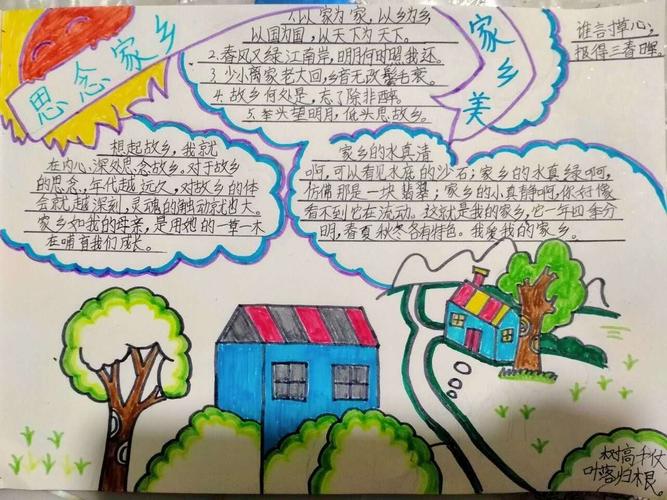 思念家乡
1.以家为家，以乡为乡，
以国为国，以天下为天下。
2.春风又绿江南岸，明月何时照我还。
3.少小离家老大回，乡音无改鬓毛衰。
4.故乡何处是，忘了除非醉。
5.举头望明月，低头思故乡。
家乡美
谁言寸草心，
报得三春晖。
想起故乡，我就
在内心深处思念故乡。对于故乡
的思念，年代越远久，对故乡的体
会就越深刻，灵魂的触动就也大。
家乡如我的母亲，是用她的一草一木
在哺育我们成长。
家乡的水真清
啊，可以看见水底的沙石；家乡的水真绿啊，
仿佛那是一块翡翠；家乡的小真静啊，你好像
看不到它在流动。这就是我的家乡，它一年四季分
明，春夏秋冬各有特色。我爱我的家乡。
树高千仗
叶落归根